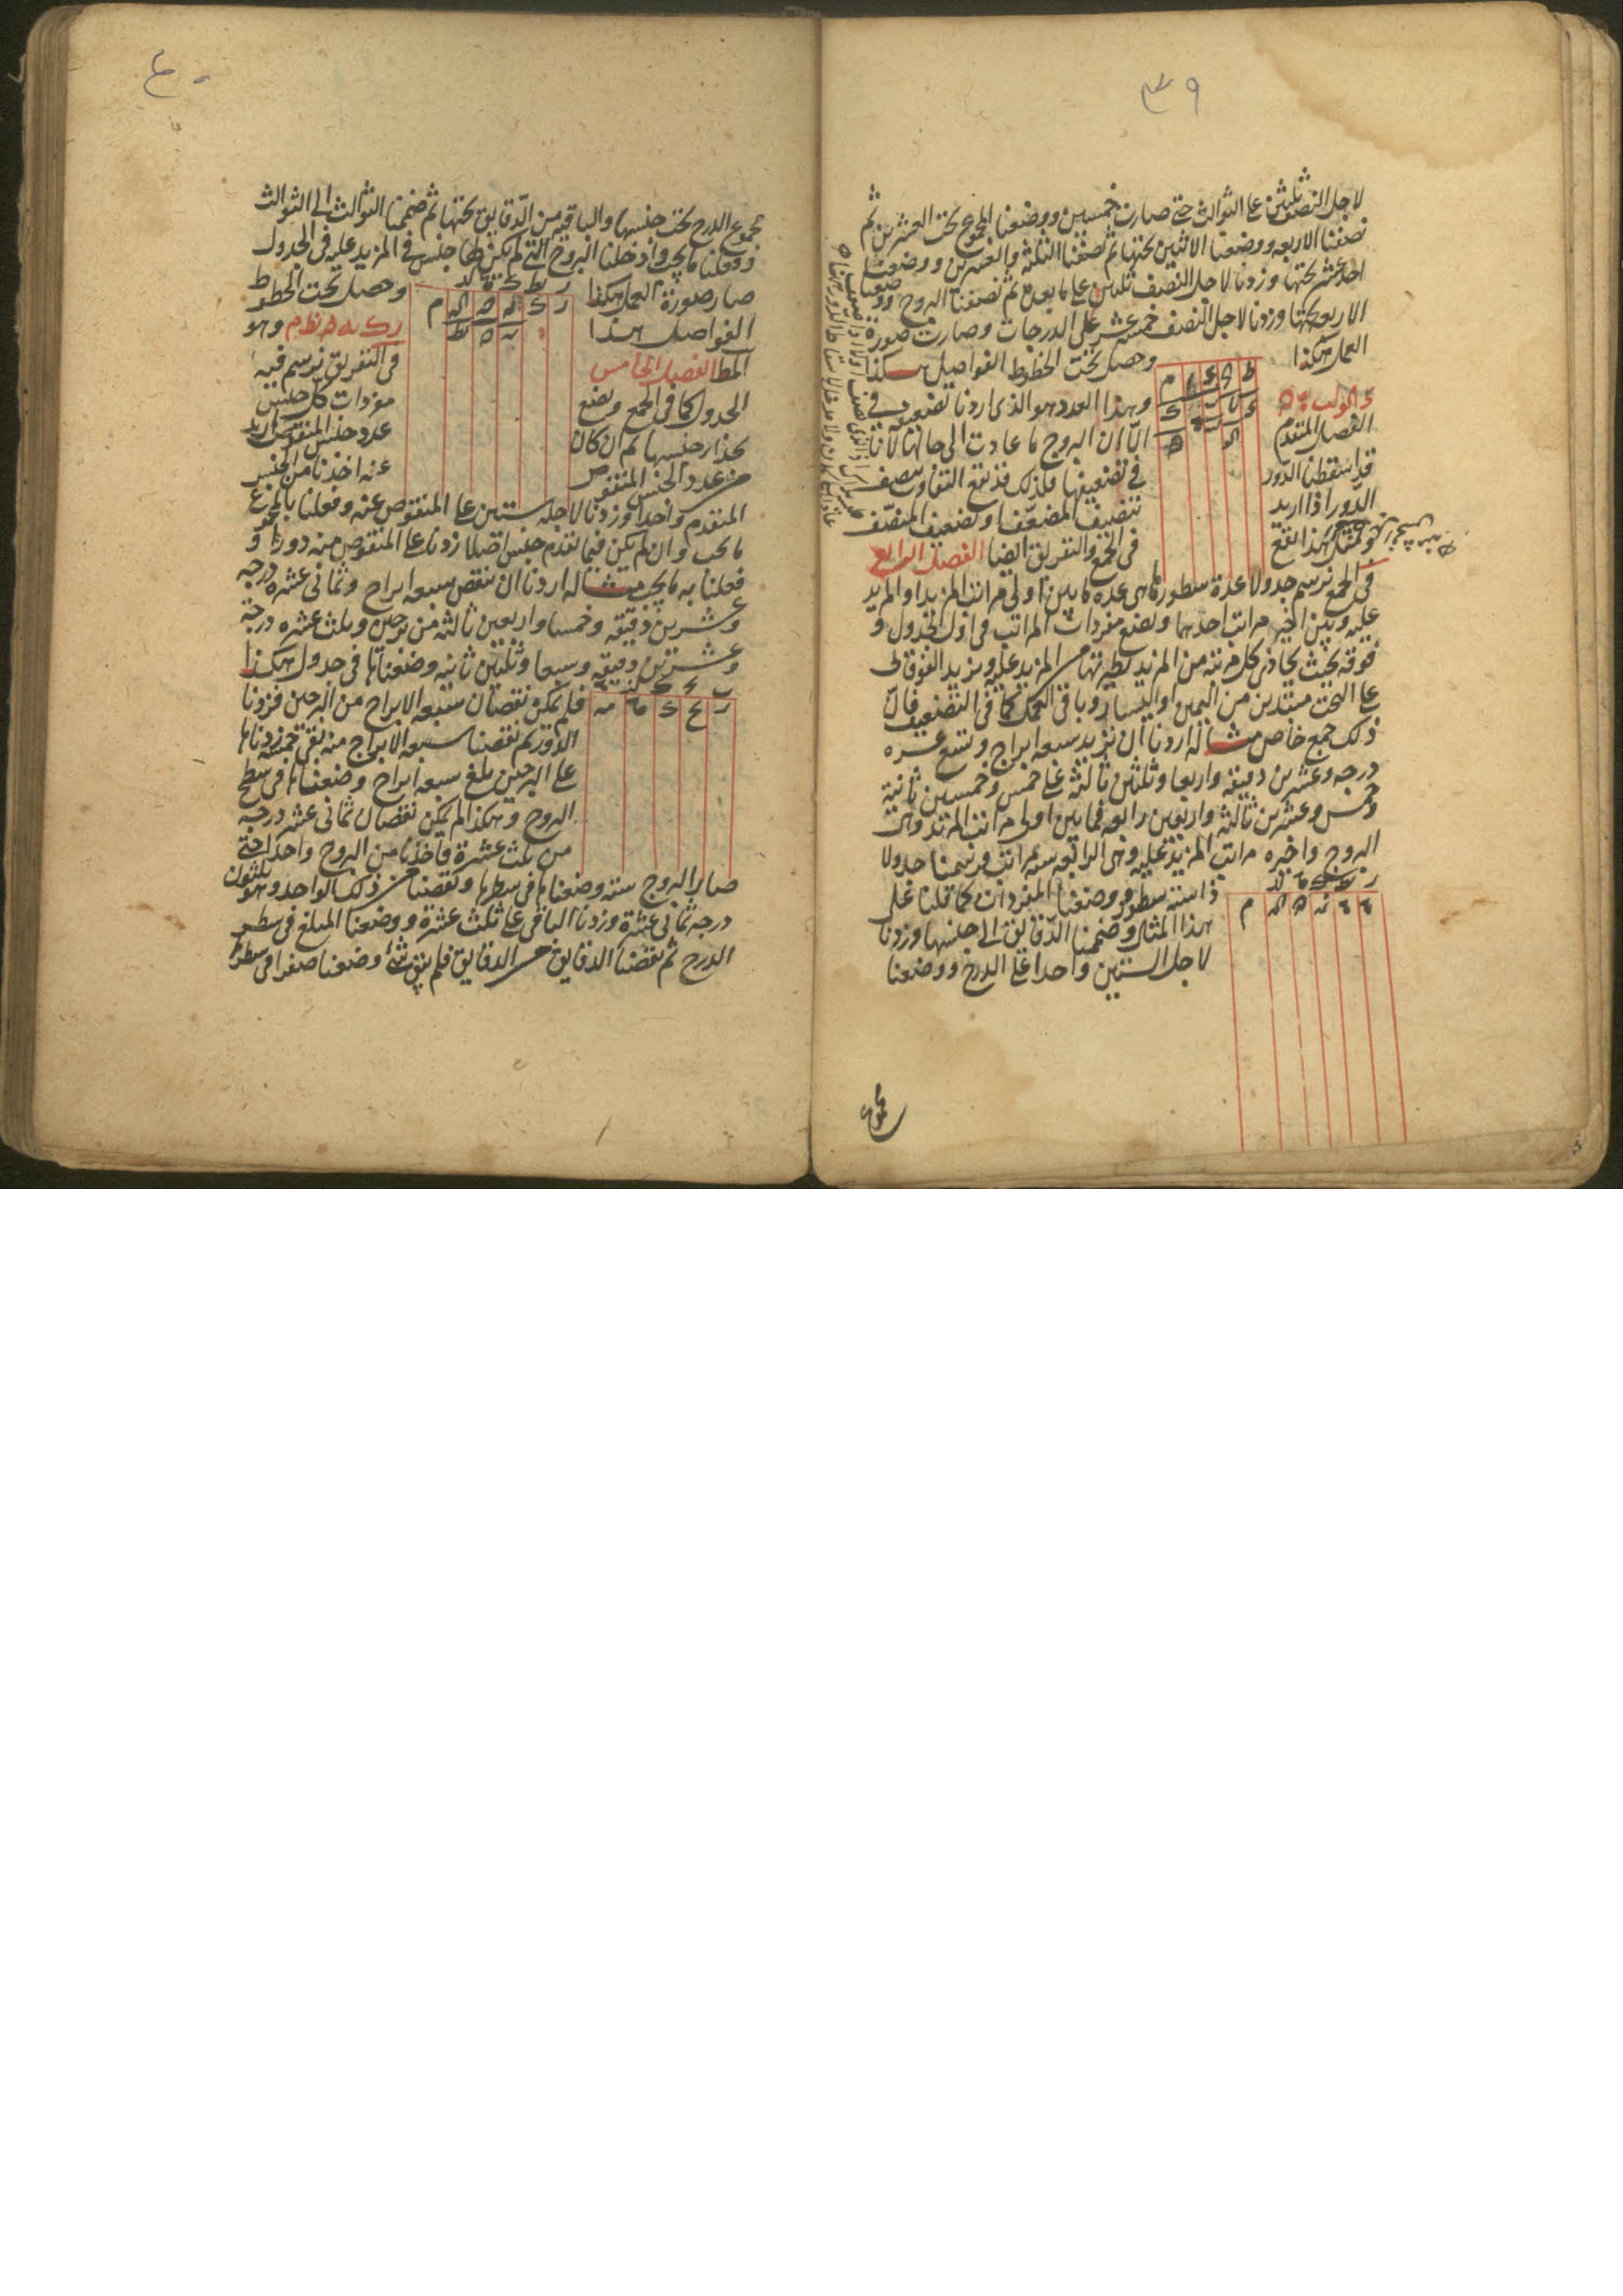 ٣٩
لاجل النصف ثلثين على الثوالث حتى صارت خمسين ووضعنا المجموع تحت العشرين ثم
نصفنا الاربعه ووضعنا الاثنين تحتها ثم نصفنا الثلثة والعشرين ووضعنا
احد عشر تحتها وزدنا لاجل النصف ثلثين على ما بعده ثم نصفنا البروج ووضعنا
الاربعه تحتها وزدنا لاجل النصف خمسة عشر على الدرجات وصارت صورة
العمل هكذا وحصل تحت الخطوط الفواصل هكذا
وهذا العدد هو الذى اردنا تضعيفه فى
الفصل المتقدم الا ان البروج ما عادت الى حالها لانا
قد اسقطنا الدور فى تضعيفها فلذلك قد يقع التفاوت بتنصيف
الدور اذا اريد تنصيف المضعّف او تضعيف المنصّف
ومثل هذا يقع فى الجمع والتفريق ايضا الفصل الرابع
فى الجمع نرسم جدولا عدة سطوره ما هى عده ما بين اولى مراتب المزيد او المزيد
عليه وبين اخير مراتب احدهما ونضع مفردات المراتب فى اول الجدول و
فوقه بحيث يحاذى كل مرتبه من المزيد نظيرتها من المزيد عليه ونزيد الفوقانى
على التحت مبتدئين من اليمين او اليسار وباقى العمل كما فى التضعيف فان
ذلك جمع خاص مثاله اردنا ان نزيد سبعه ابراج وتسع عشره
درجه وعشرين دقيقه واربعا وثلثين ثالثه على خمس وخمسين ثانية
وخمس وعشرين ثالثه واربعين رابعه فما بين اولى مراتب المزيد وهى
البروج واخيره مراتب المزيد عليه وهى الرابعه سته مراتب فرسمنا جدولا
ذا سته سطور ووضعنا المفردات كما قلنا على
هذا المثال وضممنا الدقايق الى جنسها وزدنا
لاجل الستين واحدا على الدرج ووضعنا
مجموع
٤٠
مجموع الدرج تحت جنسها والباقيه من الدقايق تحتها ثم ضممنا الثوالث الى الثوالث
وفعلنا ما يجب وادخلنا البروج التى لم يكن لها جنس فى المزيد عليه فى الجدول
صار صورة العمل هكذا وحصل تحت الخطوط
الفواصل هذا وهو
المط الفصل الخامس فى التفريق نرسم فيه
الجدول كما فى الجمع ونضع مفردات كل جنس
بحذاء جنسها ثم ان كان عدد جنس المنقوص ازيد
من عدد الجنس المنقوص عنه اخذنا من الجنس
المتقدم واحدا وزدنا لاجله ستين على المنقوص عنه وفعلنا بالمجموع
ما يجب وان لم يكن فيما تقدم جنس اصلا زدنا على المنقوص منه دورا و
فعلنا به ما يجب مثاله اردنا ان ننقص سبعه ابراج وثمانى عشره درجه
وعشرين دقيقه وخمسا واربعين ثالثه من برجين وثلث عشره درجة
وعشرين دقيقه وسبعا وثلثين ثانيه وضعناها فى جدول هكذا
فلم يمكن نقصان سبعه الابراج من البرجين فزدنا
الدور ثم نقصنا سبعه الابراج منه بقى خمسة زدناها
على البرجين بلغ سبعه ابراج وضعناها فى سطح
البروج وهكذا لم يمكن نقصان ثمانى عشر درجه
من ثلث عشرة فاخذنا من البروج واحدا حتى
صار البروج سته وضعناها فى سطرها ونقصنا من ذلك الواحد وهو ثلثون
درجه ثمانى عشرة وزدنا الباقى على ثلث عشرة ووضعنا المبلغ فى سطر
الدرج ثم نقصنا الدقايق من الدقايق فلم يبق شئ وضعنا صفرا فى سطرها